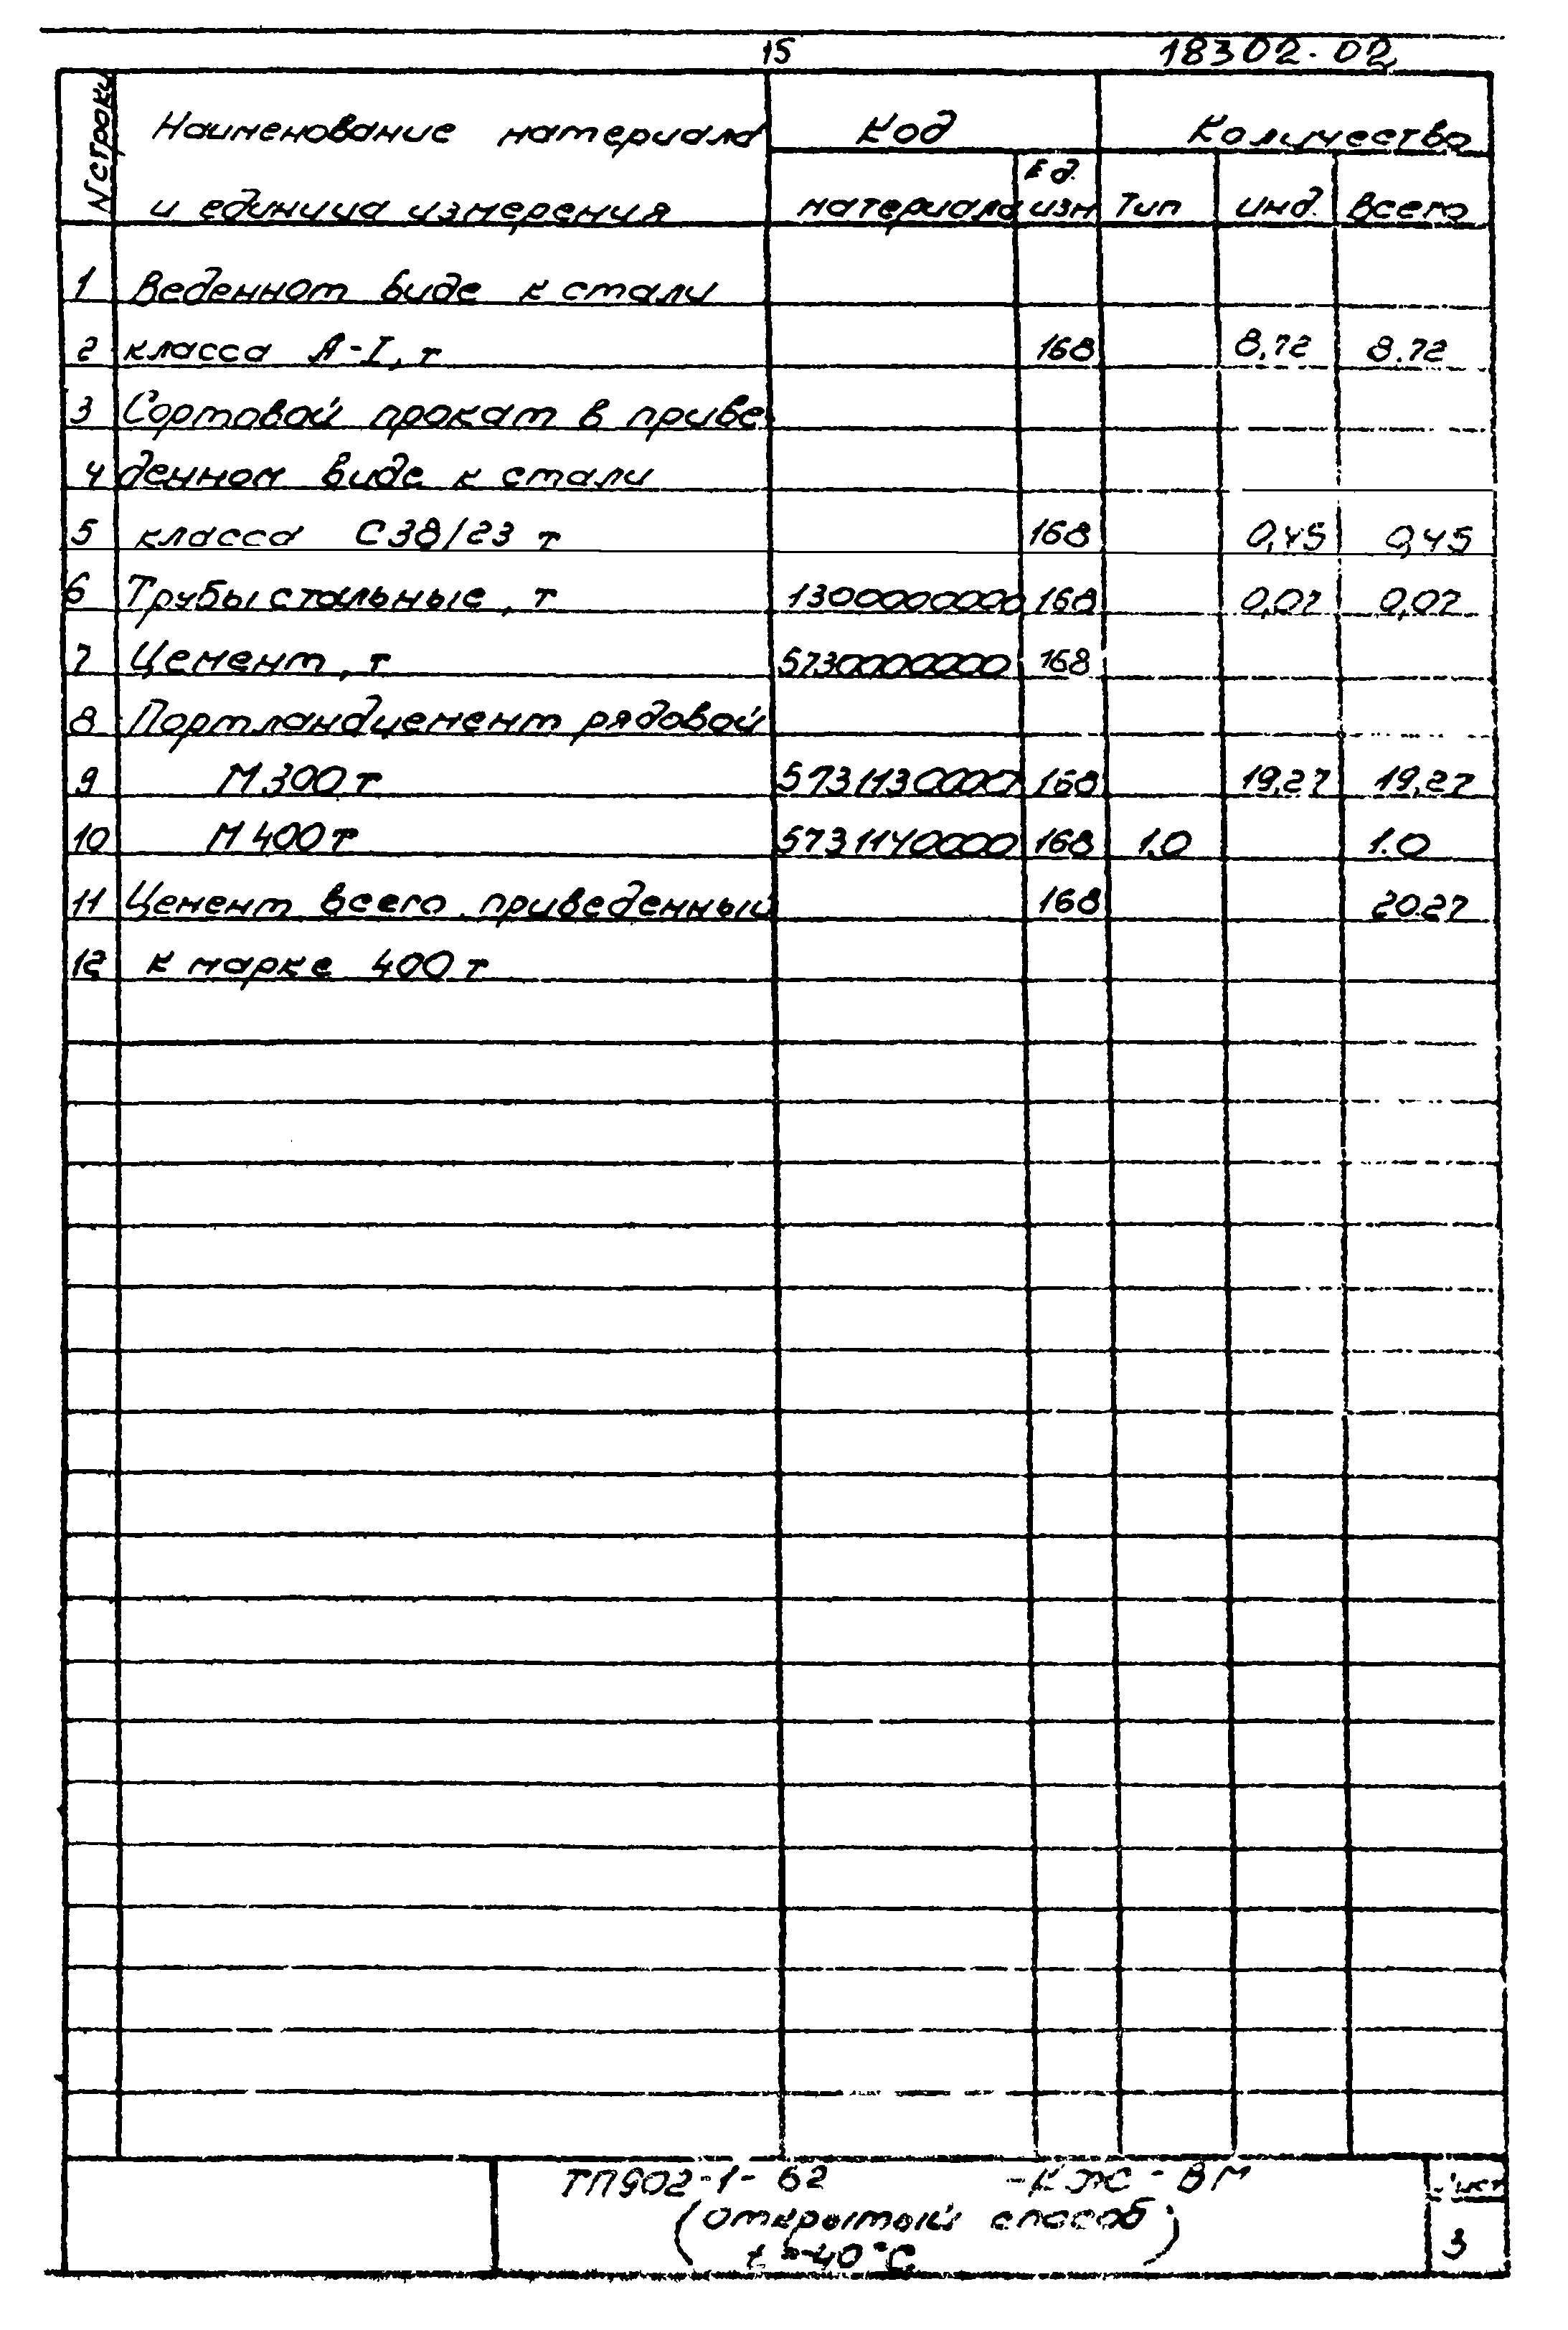 15 18302-02
N строки Наименование материала Код Количество
и единица измерения материала Ед. изм Тип инд. Всего
1 веденном виде к стали
2 класса А-I, т 168 8,72 8.72
3 Сортовой прокат в приве-
4 денном виде к стали
5 класса С38/23 т 168 0,45 0,45
6 Трубы стальные, т 1300000000 168 0,07 0,07
7 Цемент, т 5730000000 168
8 Портландцемент рядовой
9 М 300 т 5731130000 168 19,27 19,27
10 М 400 т 5731140000 168 1.0 1.0
11 Цемент всего, приведенный 168 20.27
12 к марке 400 т
ТП902-1-62 -КЖ-ВМ Лист
(открытый способ) 3
t=-40°С